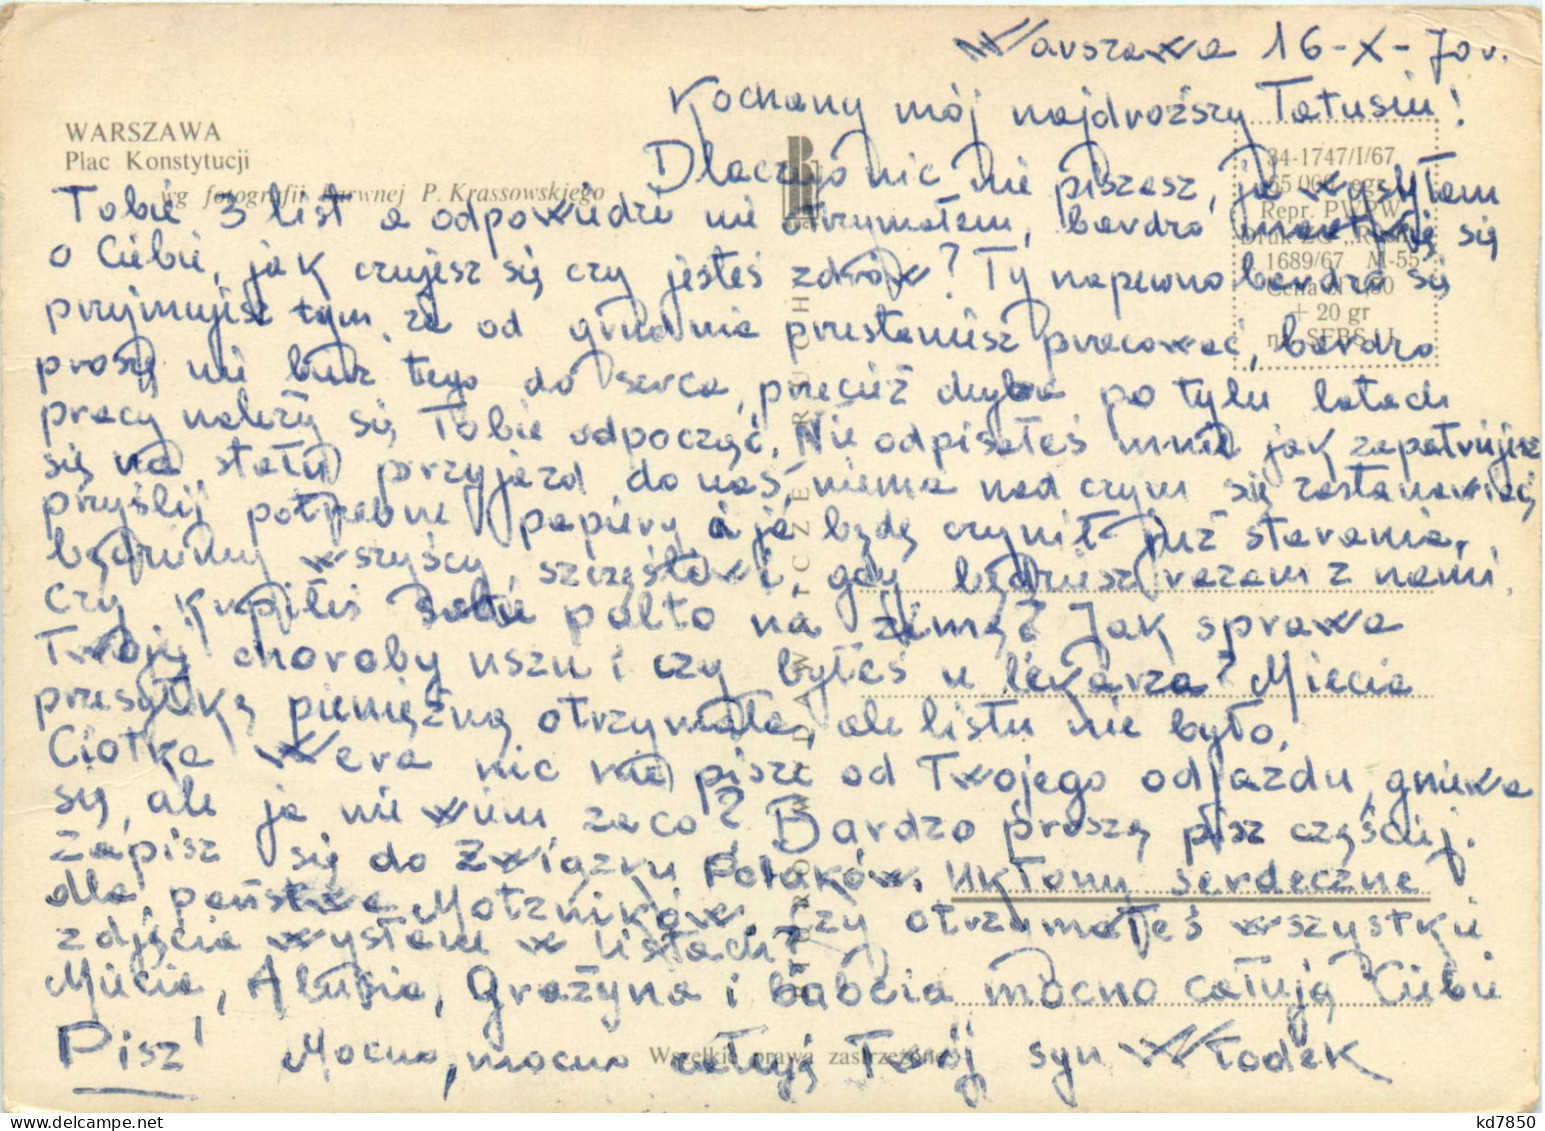 Warszawa 16-X-70 r.
Kochany mój najdroższy Tatusiu!
WARSZAWA
Plac Konstytucji
wg fotografii barwnej P. Krassowskiego
34-1747/I/67
Repr. PWPW
1689/67 M-55
+ 20 gr
Dlaczego nic nie piszesz, ja wysyłam
Tobie 3 list a odpowiedzi nie otrzymałem, bardzo martwię się
o Ciebie, jak czujesz się czy jesteś zdrów? Ty napewno bardzo się
przyjmujesz tym, że od grudnia przestaniesz pracować, bardzo
proszę nie bierz tego do serca, przecież chyba po tylu latach
pracy należy się Tobie odpocząć. Nie odpisałeś mnie jak zapatrujesz
się na stały przyjazd do nas, niema nad czym się zastanawiać,
pryślij potrzebne papiery a ja będę czynił już starania,
będziemy wszyscy szczęśliwi, gdy będziesz razem z nami.
Czy kupiłeś sobie palto na zimę? Jak sprawa
Twojej choroby uszu i czy byłeś u lekarza? Miecia
przesyłkę pieniężną otrzymała, ale listu nie było,
Ciotka Wera nic nie pisze od Twojego odjazdu, gniewa
się, ale ja nie wiem zaco? Bardzo proszę pisz częściej.
Zapisz się do Związku Polaków. Ukłony serdeczne
dla państwa Motzników. Czy otrzymałeś wszystkie
zdjęcia wysłane w listach?
Miecia, Alusia, Grażyna i babcia mocno całują Ciebie
Pisz! Mocno, mocno całuję Twój syn Włodek
Wszelkie prawa zastrzeżone
kd7850